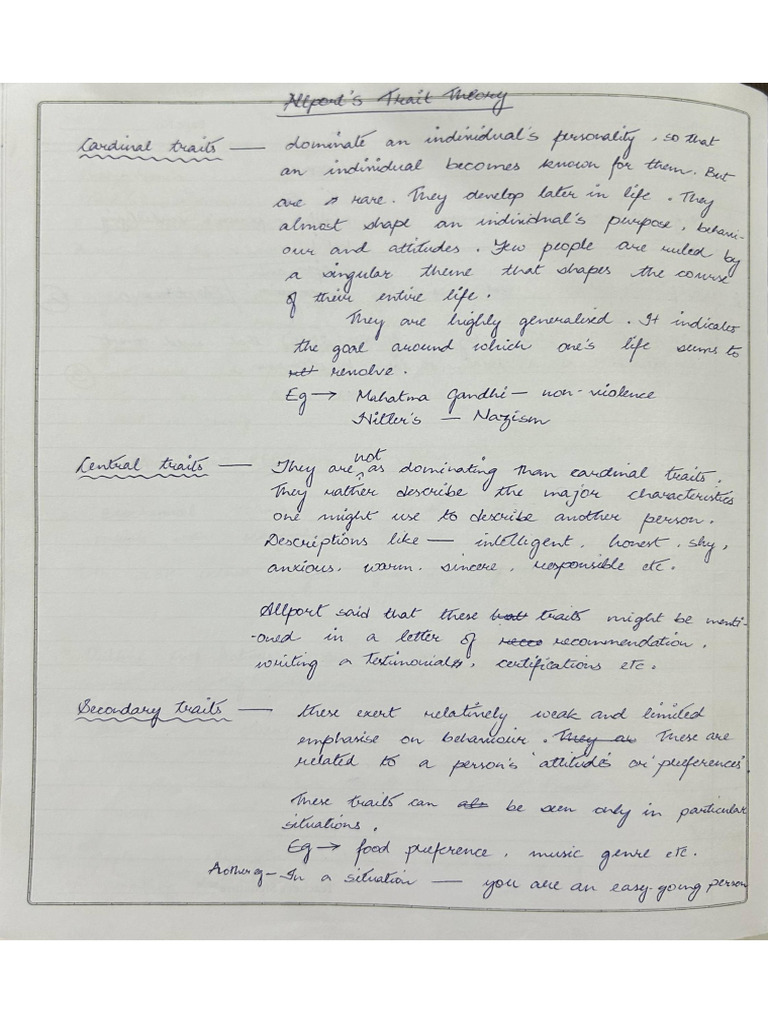 Allport's Trait Theory
Cardinal traits — dominate an individual's personality, so that
an individual becomes known for them. But
are rare. They develop later in life. They
almost shape an individual's purpose, behavi-
our and attitudes. Few people are ruled by
a singular theme that shapes the course
of their entire life.
They are highly generalised. It indicates
the goal around which one's life seems to
revolve.
Eg → Mahatma Gandhi — non-violence
Hitler's — Nazism
Central traits — They are not as dominating than cardinal traits.
They rather describe the major characteristics
one might use to describe another person.
Descriptions like — intelligent, honest, shy,
anxious, warm, sincere, responsible etc.
Allport said that these traits might be menti-
-oned in a letter of recommendation,
writing a testimonials, certifications etc.
Secondary traits — these exert relatively weak and limited
emphasise on behaviour. They ar These are
related to a person's 'attitudes' or 'preferences'.
These traits can be seen only in particular
situations.
Eg → food preference, music genre etc.
Another eg — In a situation — you are an easy-going person